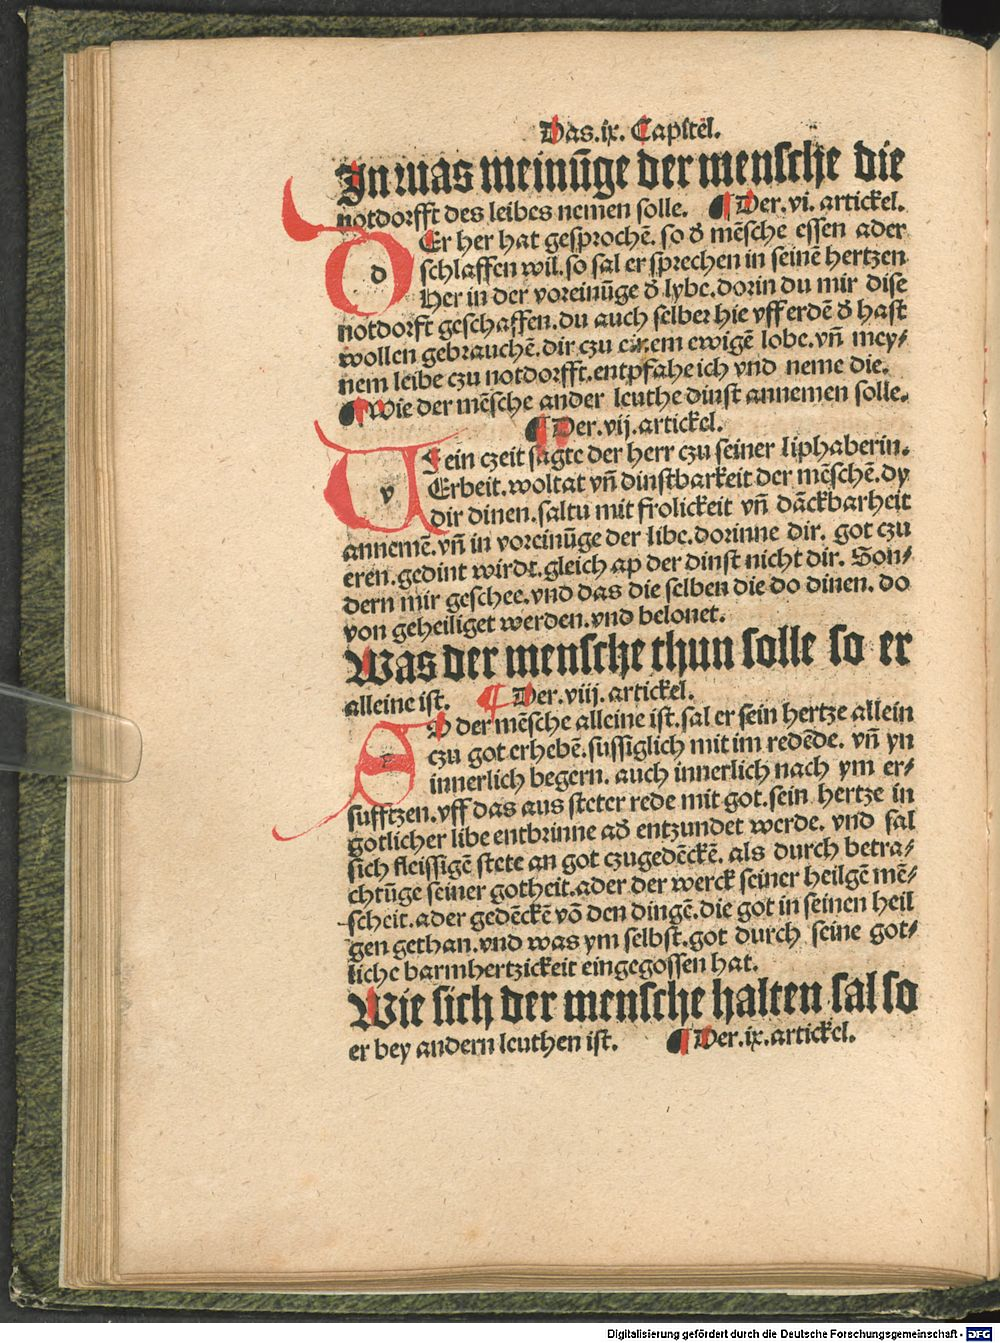 Das.ix. Capitel.
In was meinūge der mensche die
notdorfft des leibes nemen solle. ¶ Der.vi. artickel.
DEr her hat gesprochē. so ð mēsche essen ader
schlaffen wil. so sal er sprechen in seinē hertzen
Her in der voreinūge ð lybe. dorin du mir dise
notdorft geschaffen. du auch selber hie vff erdē ð hast
wollen gebrauchē. dir czu einem ewigē lobe. vñ mey⸗
nem leibe czu notdorfft. entpfahe ich vnd neme die.
¶ Wie der mēsche ander leuthe dinst annemen solle.
¶ Der.vij. artickel.
VF ein czeit sagte der herr czu seiner liphaberin.
Erbeit. woltat vñ dinstbarkeit der mēschē. dy
dir dinen. saltu mit frolickeit vñ dāckbarheit
annemē. vñ in voreinūge der libe. dorinne dir. got czu
eren. gedint wirdt. gleich ap der dinst nicht dir. Son⸗
dern mir geschee. vnd das die selben die do dinen. do
von geheiliget werden. vnd belonet.
Was der mensche thun solle so er
alleine ist. ¶ Der.viij. artickel.
SO der mēsche alleine ist. sal er sein hertze allein
czu got erhebē. sussiglich mit im redēde. vñ yn
innerlich begern. auch innerlich nach ym er⸗
sufftzen. vff das aus steter rede mit got. sein hertze in
gotlicher libe entbrinne að entzundet werde. vnd sal
sich fleissigē stete an got czugedēckē. als durch betra⸗
chtūge seiner gotheit. ader der werck seiner heilgē mē⸗
scheit. ader gedēckē vō den dingē. die got in seinen heil
gen gethan. vnd was ym selbst. got durch seine got⸗
liche barmhertzickeit eingegossen hat.
Wie sich der mensche halten sal so
er bey andern leuthen ist. ¶ Der.ix. artickel.
Digitalisierung gefördert durch die Deutsche Forschungsgemeinschaft - DFG